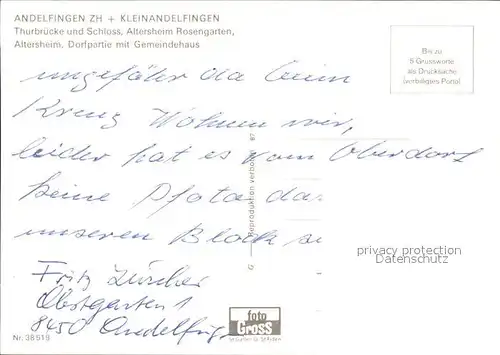 ANDELFINGEN ZH + KLEINANDELFINGEN
Thurbrücke und Schloss, Altersheim Rosengarten,
Altersheim, Dorfpartie mit Gemeindehaus
Bis zu
5 Grussworte
als Drucksache
(verbilligtes Porto)
ungefäher da beim
Kreuz Wohnen wir,
leider hat es vom Oberdorf
keine Pfoto da
unseren Block
Reproduktion verboten 87
G
privacy protection
Datenschutz
Fritz Zürcher
Obstgarten 1
8450 Andelfing.
foto
Gross
St. Gallen
Nr. 38519